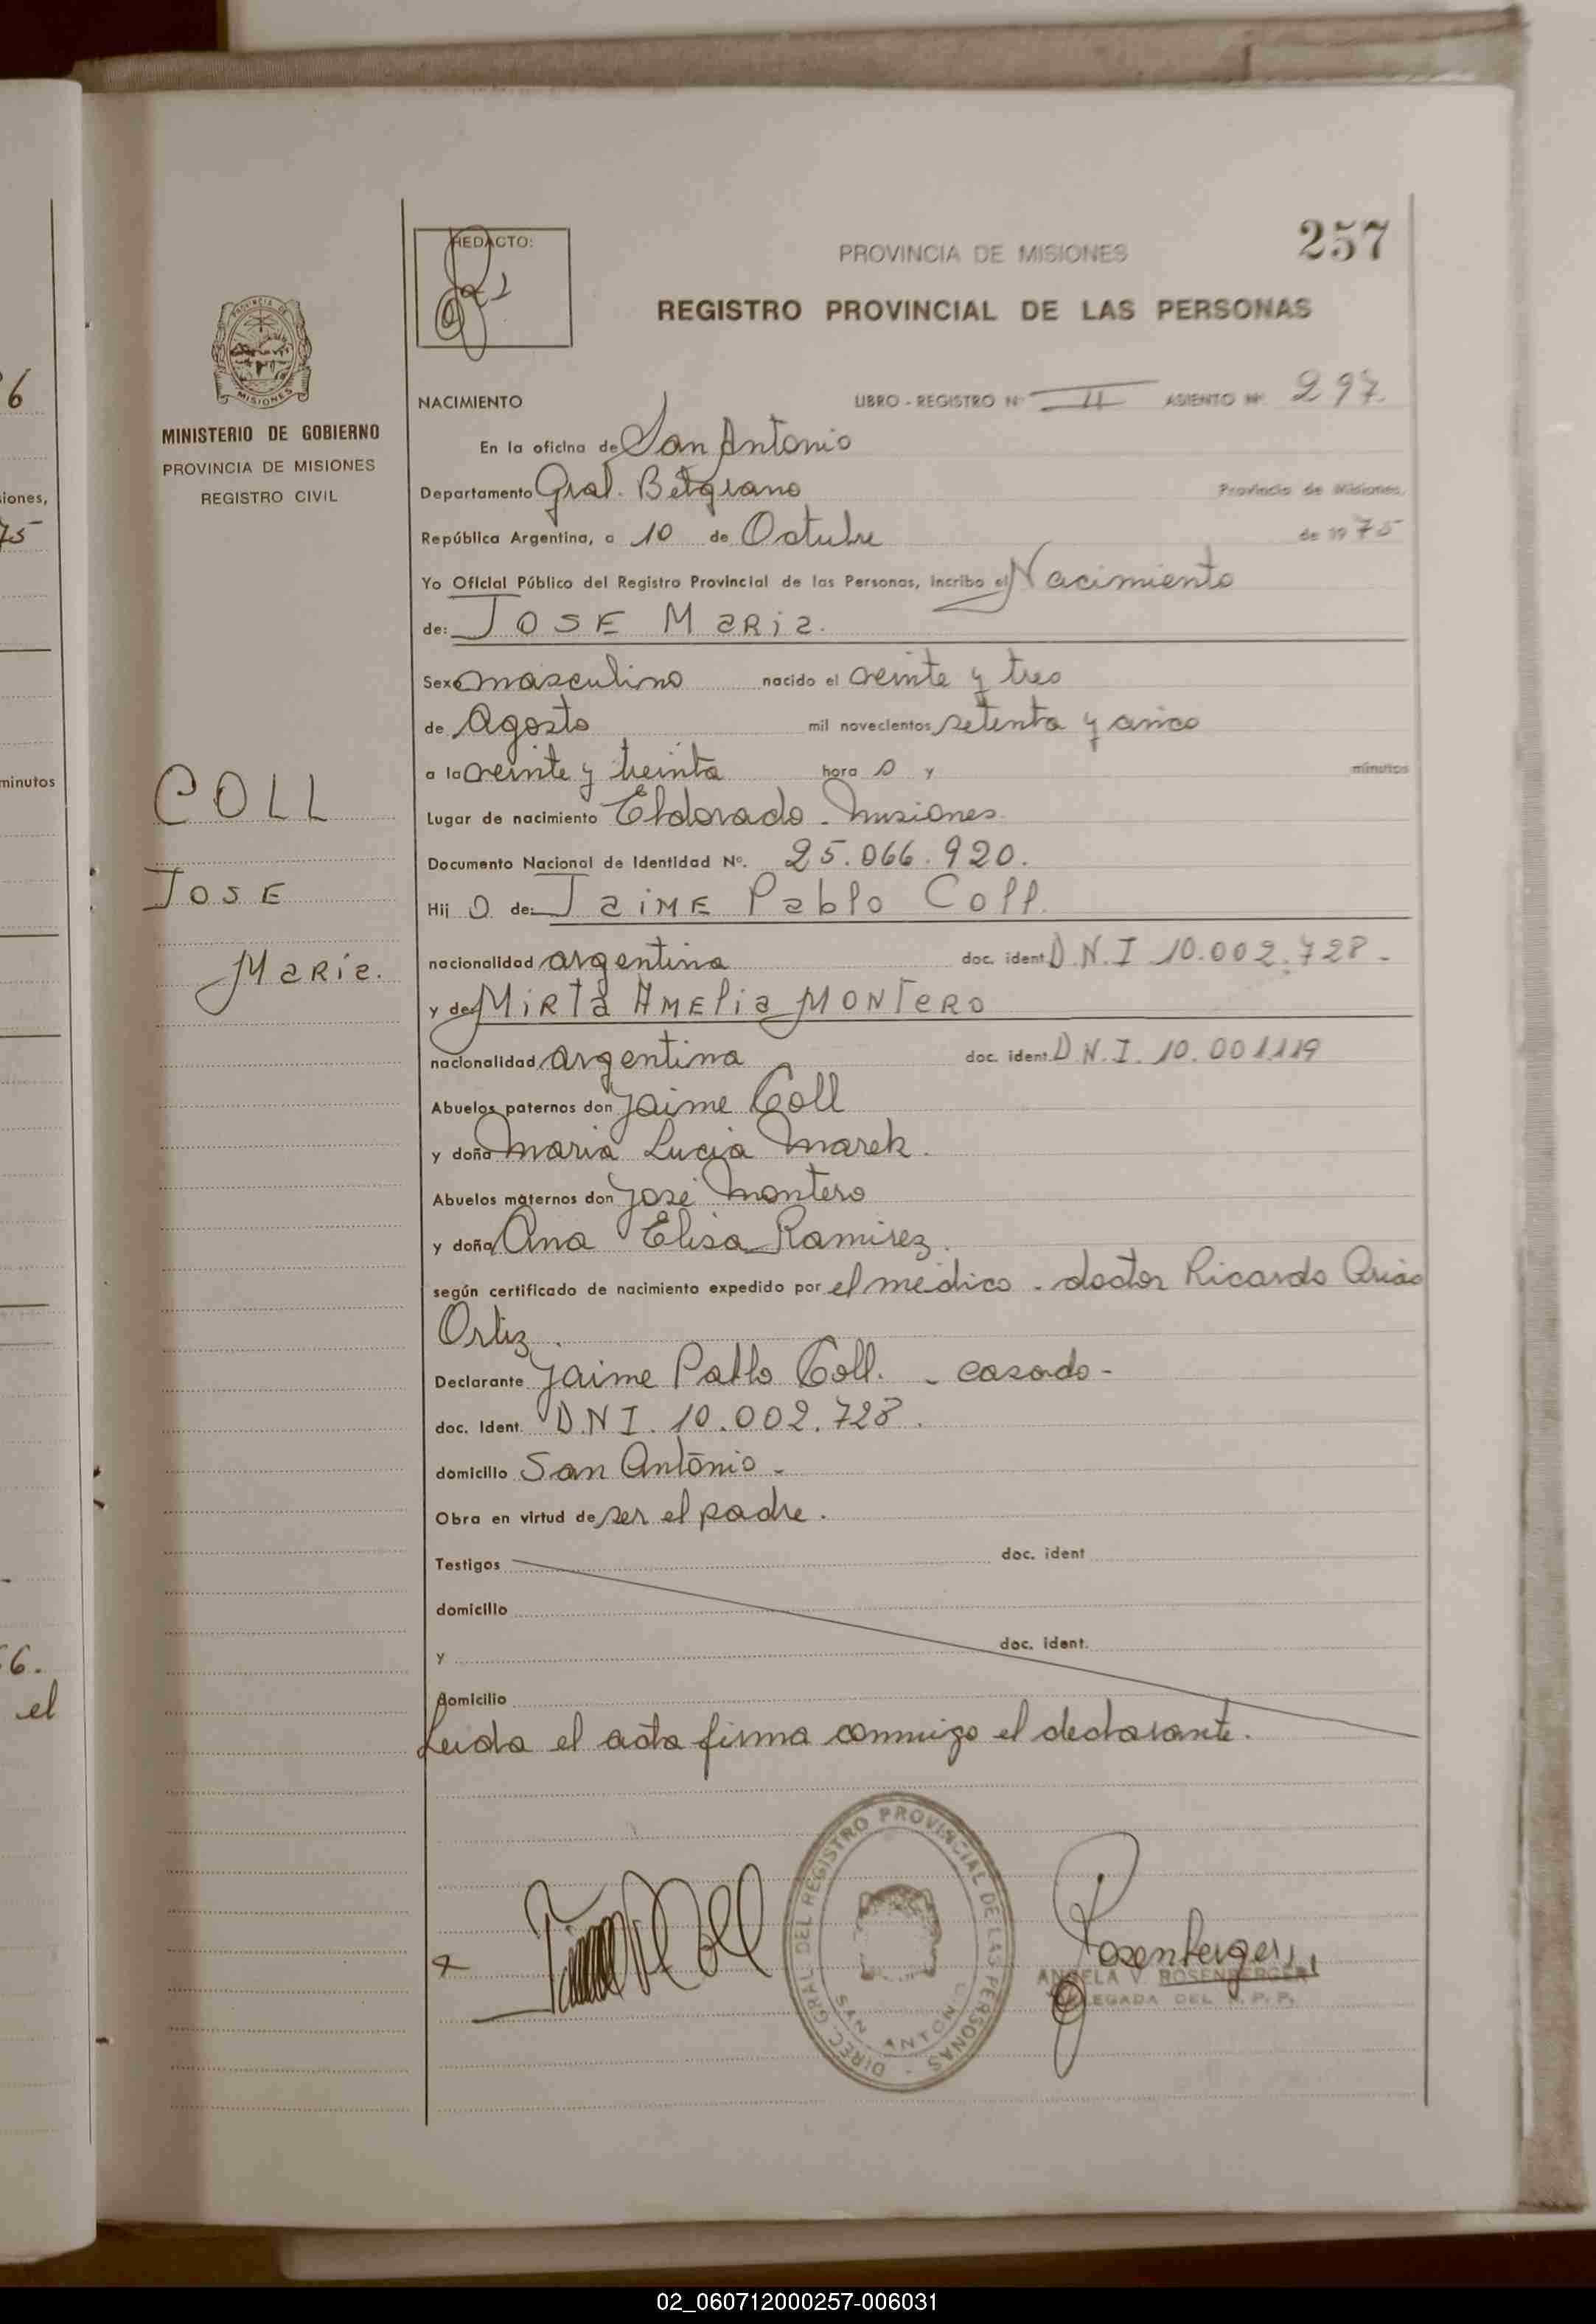 6
iones,
75
minutos
6.
el
PROVINCIA DE
MISIONES
MINISTERIO DE GOBIERNO
PROVINCIA DE MISIONES
REGISTRO CIVIL
COLL
JOSE
MARIA.
REDACTO:
257
PROVINCIA DE MISIONES
REGISTRO PROVINCIAL DE LAS PERSONAS
NACIMIENTO LIBRO - REGISTRO Nº II ASIENTO Nº 297.
En la oficina de San Antonio
Departamento Gral. Belgrano Provincia de Misiones,
República Argentina, a 10 de Octubre de 1975
Yo Oficial Público del Registro Provincial de las Personas, incribo el Nacimiento
de: JOSE MARIA.
Sexo masculino nacido el veinte y tres
de Agosto mil novecientos setenta y cinco
a la veinte y treinta hora s y minutos
Lugar de nacimiento Eldorado - Misiones
Documento Nacional de Identidad Nº. 25.066.920.
Hij o de: JAIME Pablo Coll.
nacionalidad argentina doc. ident. D.N.I 10.002.728 -
y de MIRTA AMELIA MONTERO
nacionalidad argentina doc. ident. D.N.I. 10.001.119
Abuelos paternos don Jaime Coll
y doña Maria Lucia Marek.
Abuelos maternos don José Montero
y doña Ana Elisa Ramirez.
según certificado de nacimiento expedido por el médico - doctor Ricardo Arias
Ortiz.
Declarante Jaime Pablo Coll. - casado -
doc. Ident. D.N I. 10.002.728.
domicilio San Antonio -
Obra en virtud de ser el padre.
Testigos doc. ident
domicilio
y doc. ident.
domicilio
Leida el acta firma conmigo el declarante.
DIREC. GRAL. DEL REGISTRO PROVINCIAL DE LAS PERSONAS -
SAN ANTONIO
Coll
Rosenberger
ANGELA V. ROSENBERGER
DELEGADA DEL R. P. P.
02_060712000257-006031